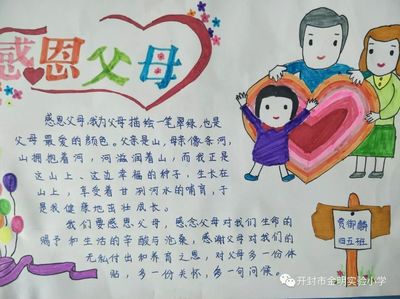 感恩父母
感恩父母,我为父母描绘一笔翠绿,也是
父母最爱的颜色。父亲是山,母亲像条河,
山拥抱着河,河滋润着山,而我正是
这山上、这边幸福的种子,生长在
山上,享受着甘冽河水的哺育,于
是我健康地茁壮成长。
我们要感恩父母,感念父母对我们生命的
赐予和生活的辛酸与沧桑,感谢父母对我们的
无私付出和养育之恩,对父母多一份体
贴,多一份关怀,多一句问候。
四五班
开封市金明实验小学